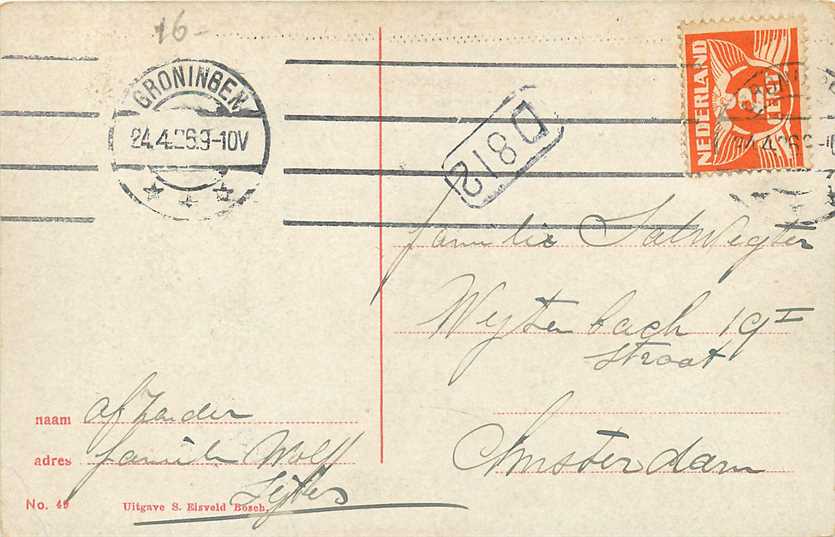 16-
GRONINGEN
24.4.26.9-10V
NEDERLAND
D 812
familie
Wyttenbach 19 I
straat
Amsterdam
naam afzender
adres familie Wolff
No. 49 Uitgave S. Eisveld Bosch.